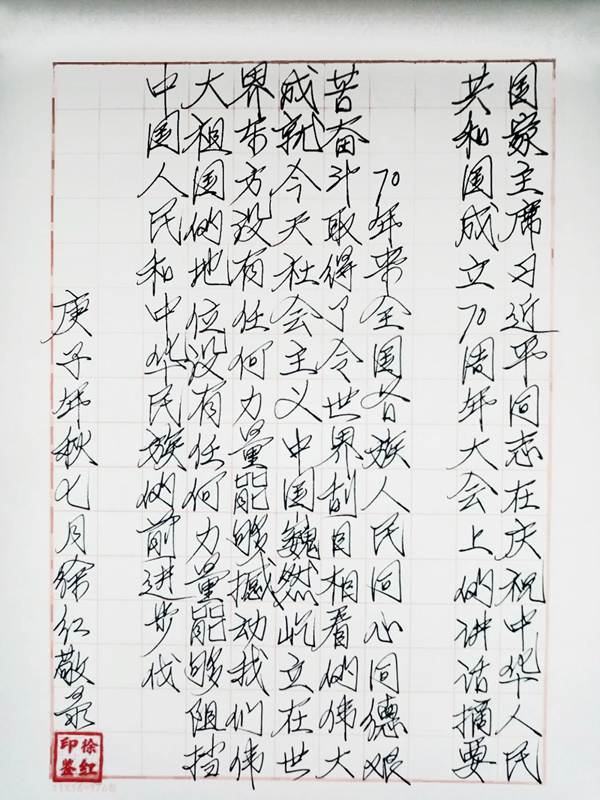 国家主席习近平同志在庆祝中华人民
共和国成立70周年大会上的讲话摘要
70年来全国各族人民同心同德艰
苦奋斗取得了令世界刮目相看的伟大
成就今天社会主义中国巍然屹立在世
界东方没有任何力量能够撼动我们伟
大祖国的地位没有任何力量能够阻挡
中国人民和中华民族的前进步伐
庚子年秋七月徐红敬录
徐红
印鉴